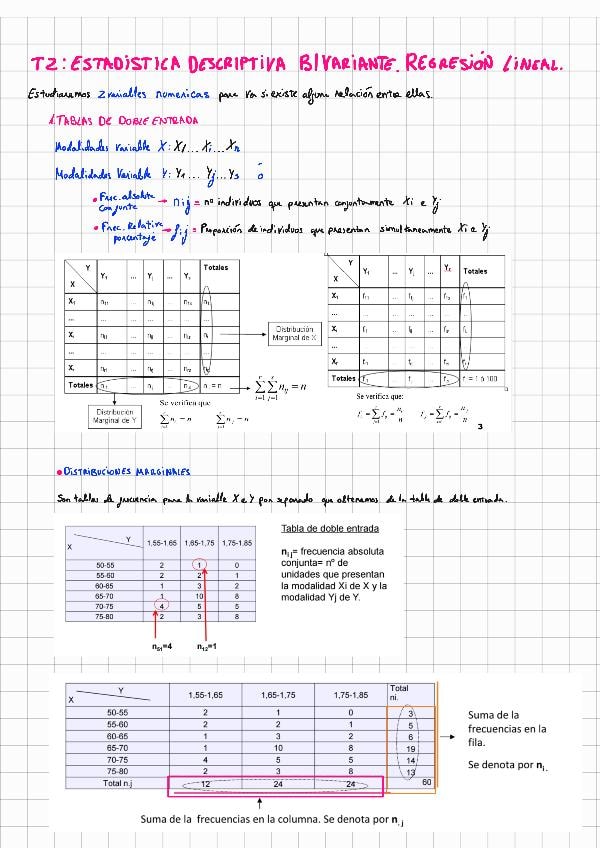 T2: ESTADÍSTICA DESCRIPTIVA BIVARIANTE. REGRESIÓN LINEAL.
Estudiaremos 2 variables numericas para ver si existe alguna relación entre ellas.
1. TABLAS DE DOBLE ENTRADA
Modalidades Variable X: X1... Xi... Xr
Modalidades Variable Y: Y1... Yj... Ys
• Frec. absoluta conjunta → nij = nº individuos que presentan conjuntamente Xi e Yj
• Frec. Relativa porcentaje → fij = Proporción de individuos que presentan simultaneamente Xi e Yj
Y Y1 ... Yj ... Ys Totales
X
X1 n11 ... n1j ... n1s n1
... ... ... ... ... ...
Xi ni1 ... nij ... nis ni
... ... ... ... ... ...
Xr nr1 ... nrj ... nrs nr
Totales n1 ... nj ... ns n = n
Y Y1 ... Yj ... Ys Totales
X
X1 f11 ... f1j ... f1s f1
... ... ... ... ... ...
Xi fi1 ... fij ... fis fi
... ... ... ... ... ...
Xr fr1 ... frj ... frs fr
Totales f1 ... fj ... fs f = 1 ó 100
Distribución
Marginal de X
Distribución
Marginal de Y
Se verifica que
Se verifica que:
3
• DISTRIBUCIONES MARGINALES
Son tablas de frecuencia para la variable X e Y por separado que obtenemos de la tabla de doble entrada.
Y
X
1,55-1,65 1,65-1,75 1,75-1,85
50-55 2 1 0
55-60 2 2 1
60-65 1 3 2
65-70 1 10 8
70-75 4 5 5
75-80 2 3 8
n51=4 n12=1
Tabla de doble entrada
nij= frecuencia absoluta
conjunta= nº de
unidades que presentan
la modalidad Xi de X y la
modalidad Yj de Y.
Y
X
1,55-1,65 1,65-1,75 1,75-1,85 Total
ni.
50-55 2 1 0 3
55-60 2 2 1 5
60-65 1 3 2 6
65-70 1 10 8 19
70-75 4 5 5 14
75-80 2 3 8 13
Total n.j 12 24 24 60
Suma de la
frecuencias en la
fila.
Se denota por ni.
Suma de la frecuencias en la columna. Se denota por n.j